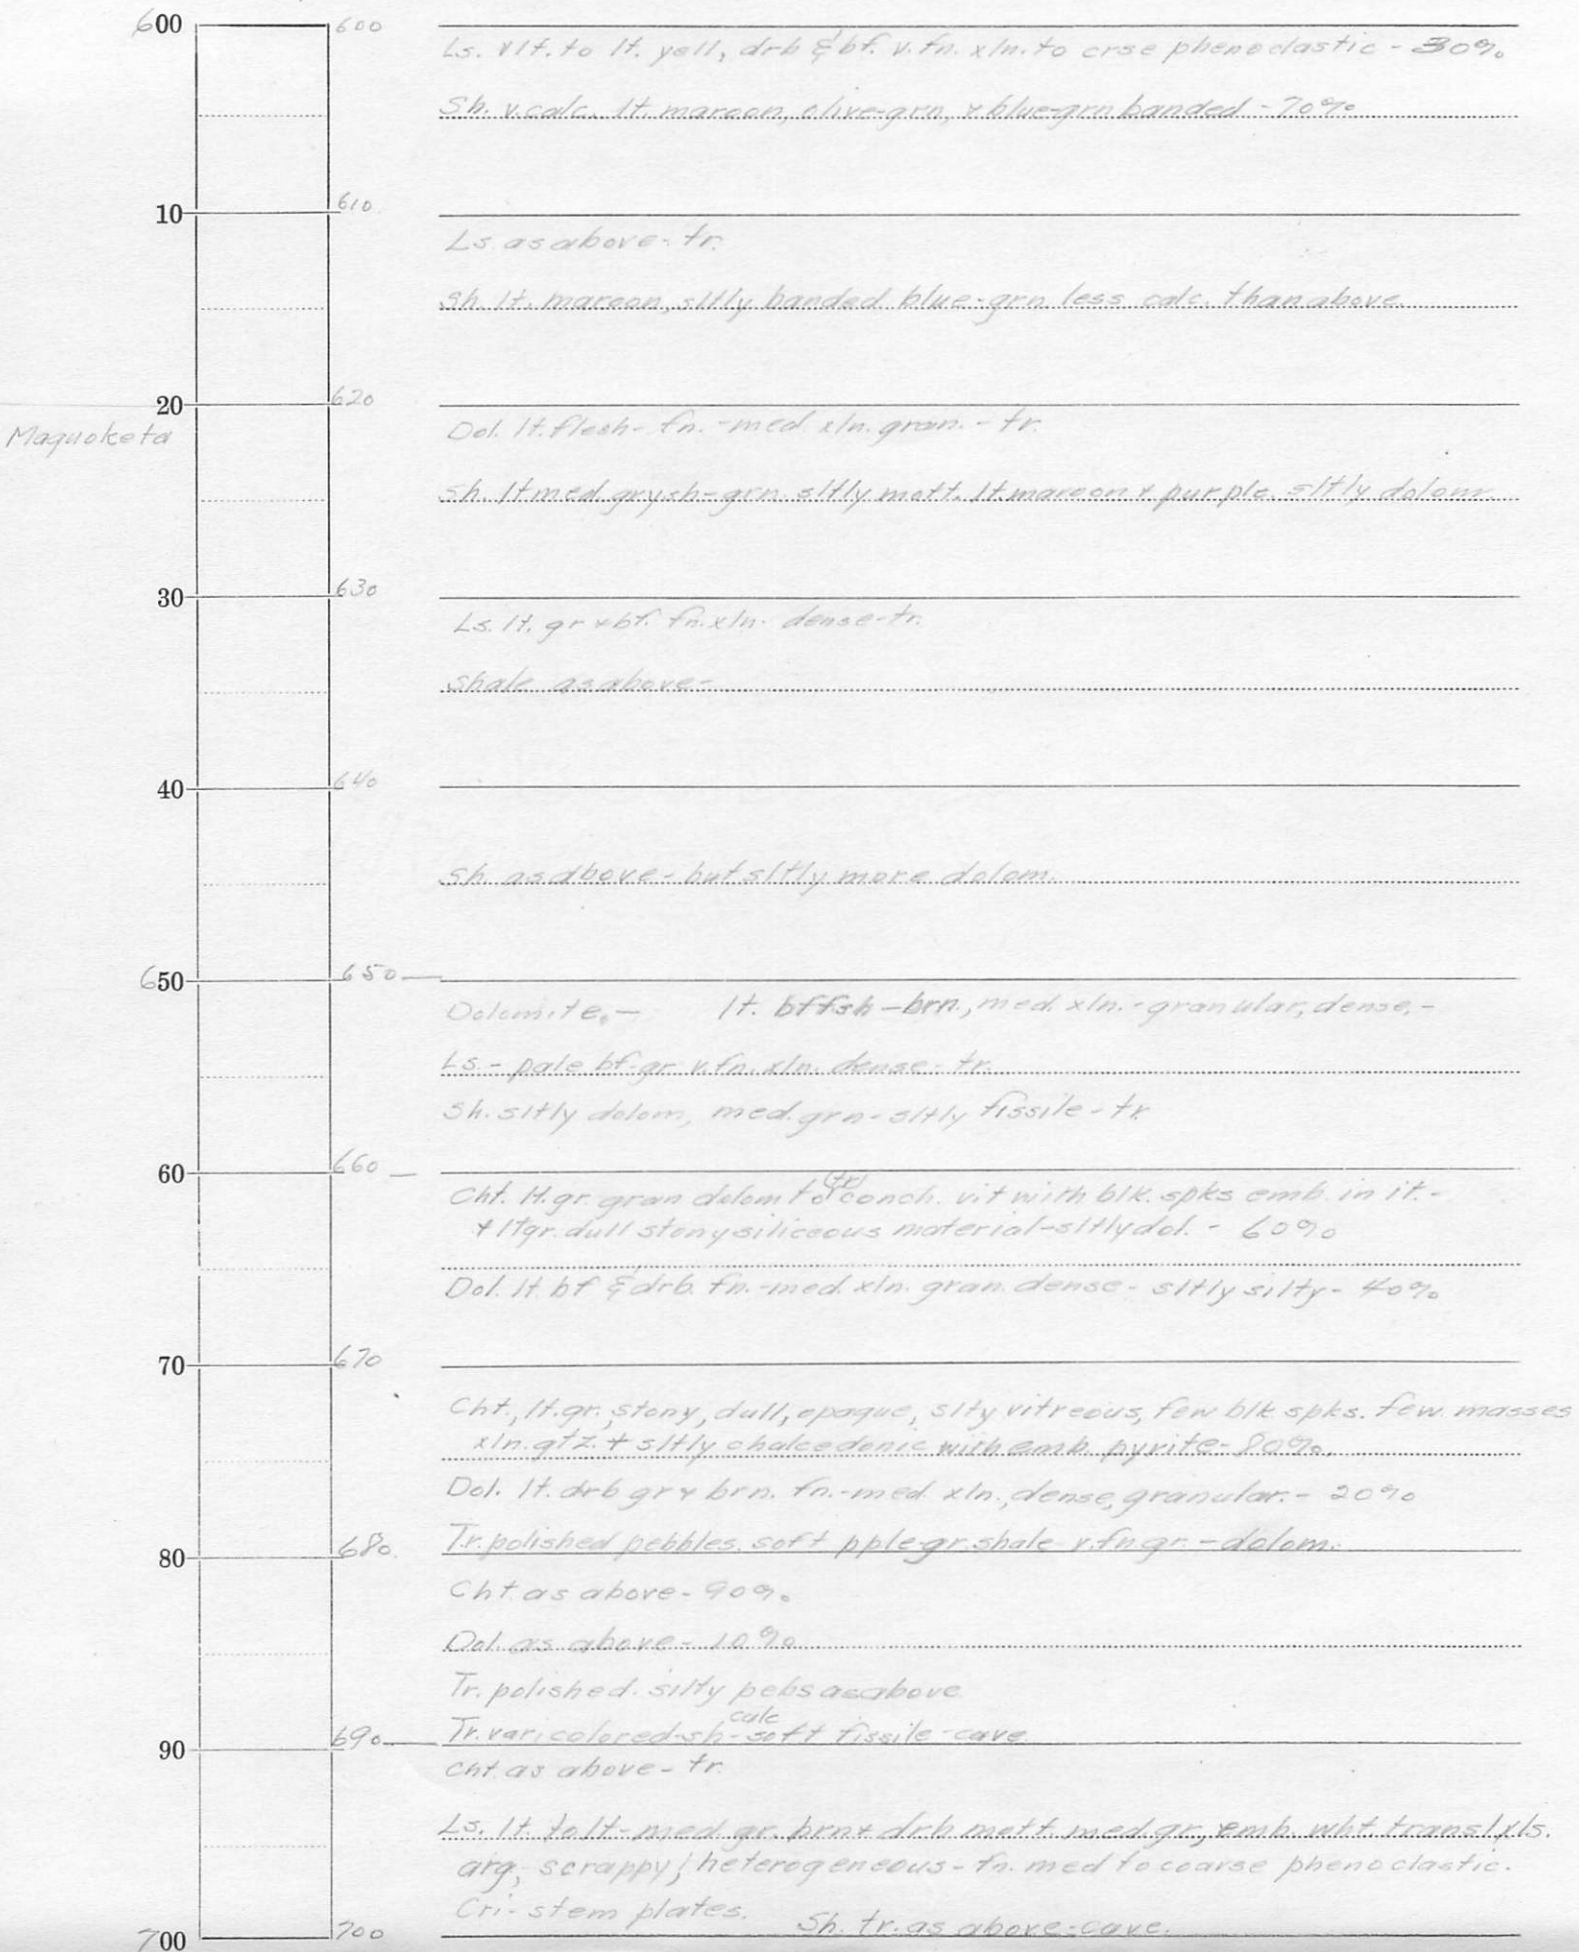 600 600
Ls. vlt. to lt. yell, drb & bf. v. fn. xln. to crse phenoclastic - 30%
Sh. v. calc. lt. maroon, olive-grn, + blue-grn banded - 70%
10 610
Ls as above - tr.
Sh. lt. maroon, sltly banded blue-grn less calc. than above.
20 620
Maquoketa
Dol. lt. flesh - fn. - med xln. gran. - tr.
Sh. lt med. grysh-grn. sltly mott. lt. maroon + purple. sltly dolom.
30 630
Ls. lt. gr + bf. fn. xln. dense - tr.
Shale as above -
40 640
Sh. as above - but sltly more dolom.
650 650
Dolomite. — lt. bffsh - brn., med. xln. - granular, dense. -
Ls. - pale bf-gr v. fn. xln. dense - tr.
Sh. sltly dolom, med. grn - sltly fissile - tr.
60 660
Cht. lt. gr. gran dolom to (tr) conch. vit with blk. spks emb. in it. -
+ lt gr. dull stony siliceous material - sltly dol. - 60%
Dol. lt bf & drb. fn. - med. xln. gran. dense - sltly silty - 40%
70 670
Cht., lt. gr., stony, dull, opaque, slty vitreous, few blk spks. few masses
xln. qtz. + sltly chalcedonic with emb. pyrite - 80%.
Dol. lt. drb gr + brn. fn. - med. xln., dense, granular. - 20%
80 680
Tr. polished pebbles. soft pple-gr. shale v. fn gr. - dolom.
Cht as above - 90%
Dol. as above - 10%
Tr. polished. silty pebs as above
90 690
Tr. varicolored - sh - calc soft fissile - cave
Cht as above - tr.
Ls. lt. to lt - med gr. brn + drb mott. med gr, emb. wht. transl xls.
arg, scrappy, heterogeneous - fn. med to coarse phenoclastic.
Cri - stem plates. Sh. tr. as above - cave.
700 700